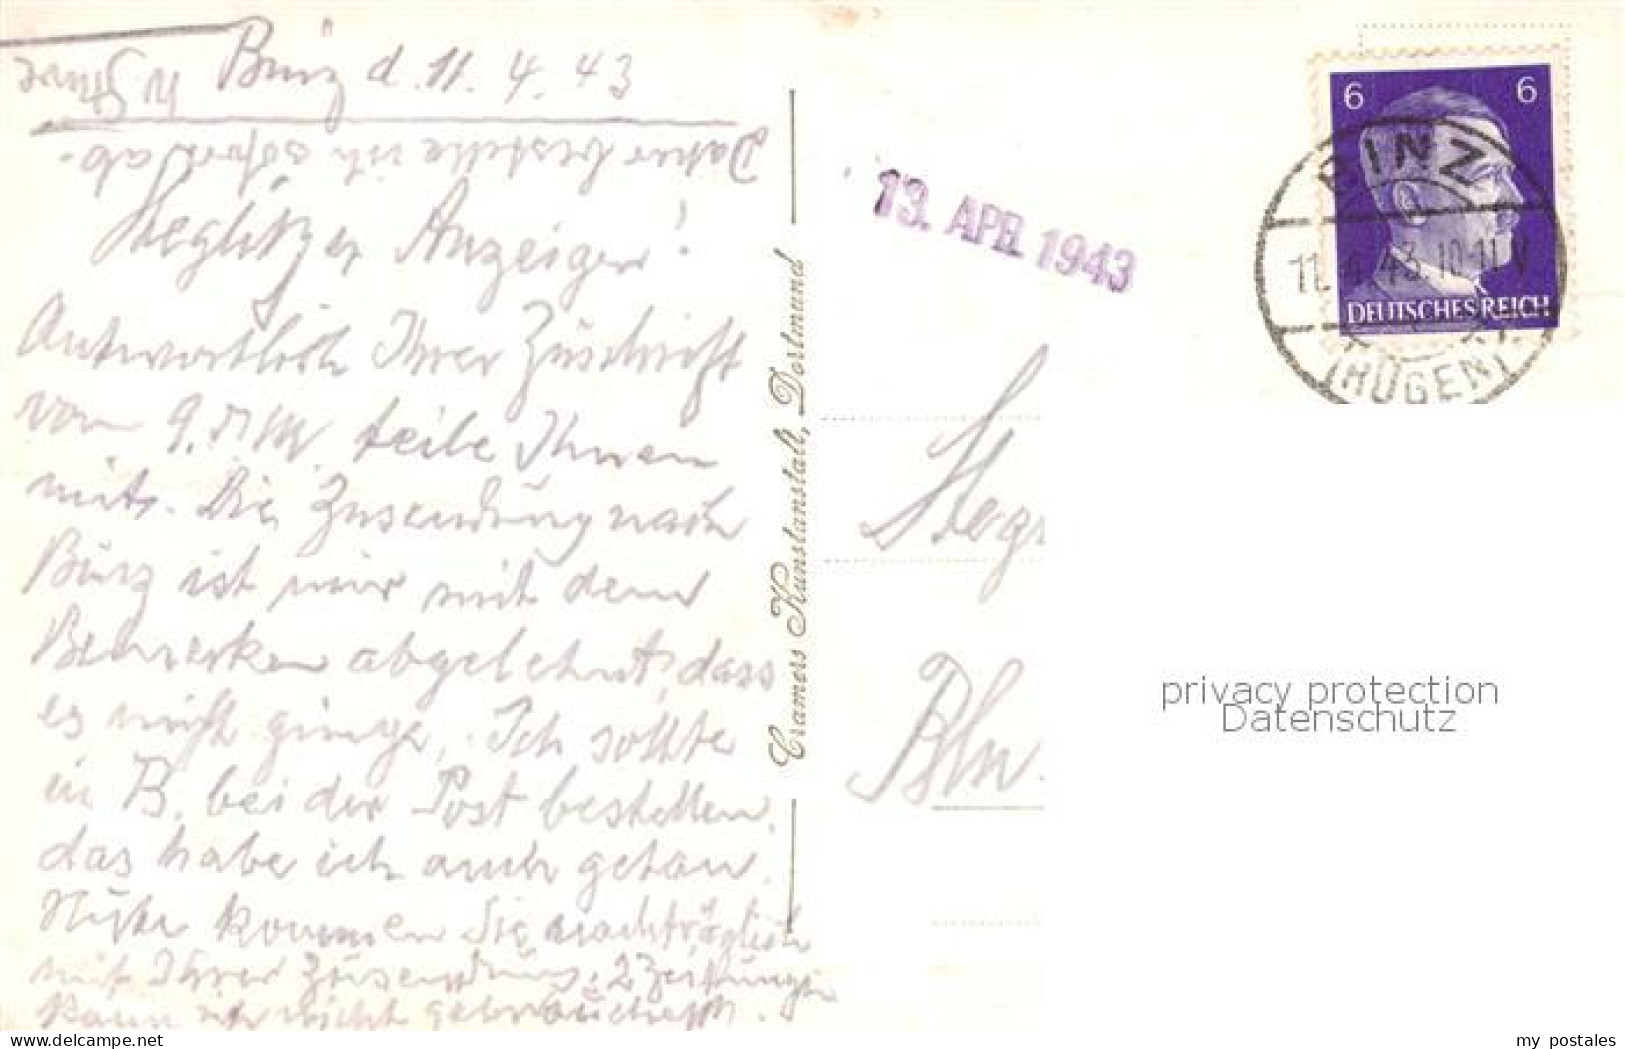 Binz d. 11. 4. 43
Daher bestelle ich sofort ab.
Steglitzer Anzeiger!
Antwortlich Ihrer Zuschrift
vom 9. teile Ihnen
mit. Die Zusendung nach
Binz ist mir mit dem
Bemerken abgelehnt, dass
es nicht ginge. Ich sollte
in B. bei der Post bestellen,
das habe ich auch getan.
kommen Sie nachträglich
mit Ihrer Zusendung. 2 Zeitungen
kann ich nicht gebrauchen.
Cramers Kunstanstalt, Dortmund
13. APR. 1943
6 6
DEUTSCHES REICH
BINZ
11. 4. 43. 10-11 V
(RÜGEN)
Steg
Bln.
privacy protection
Datenschutz
www.delcampe.net
my_postales